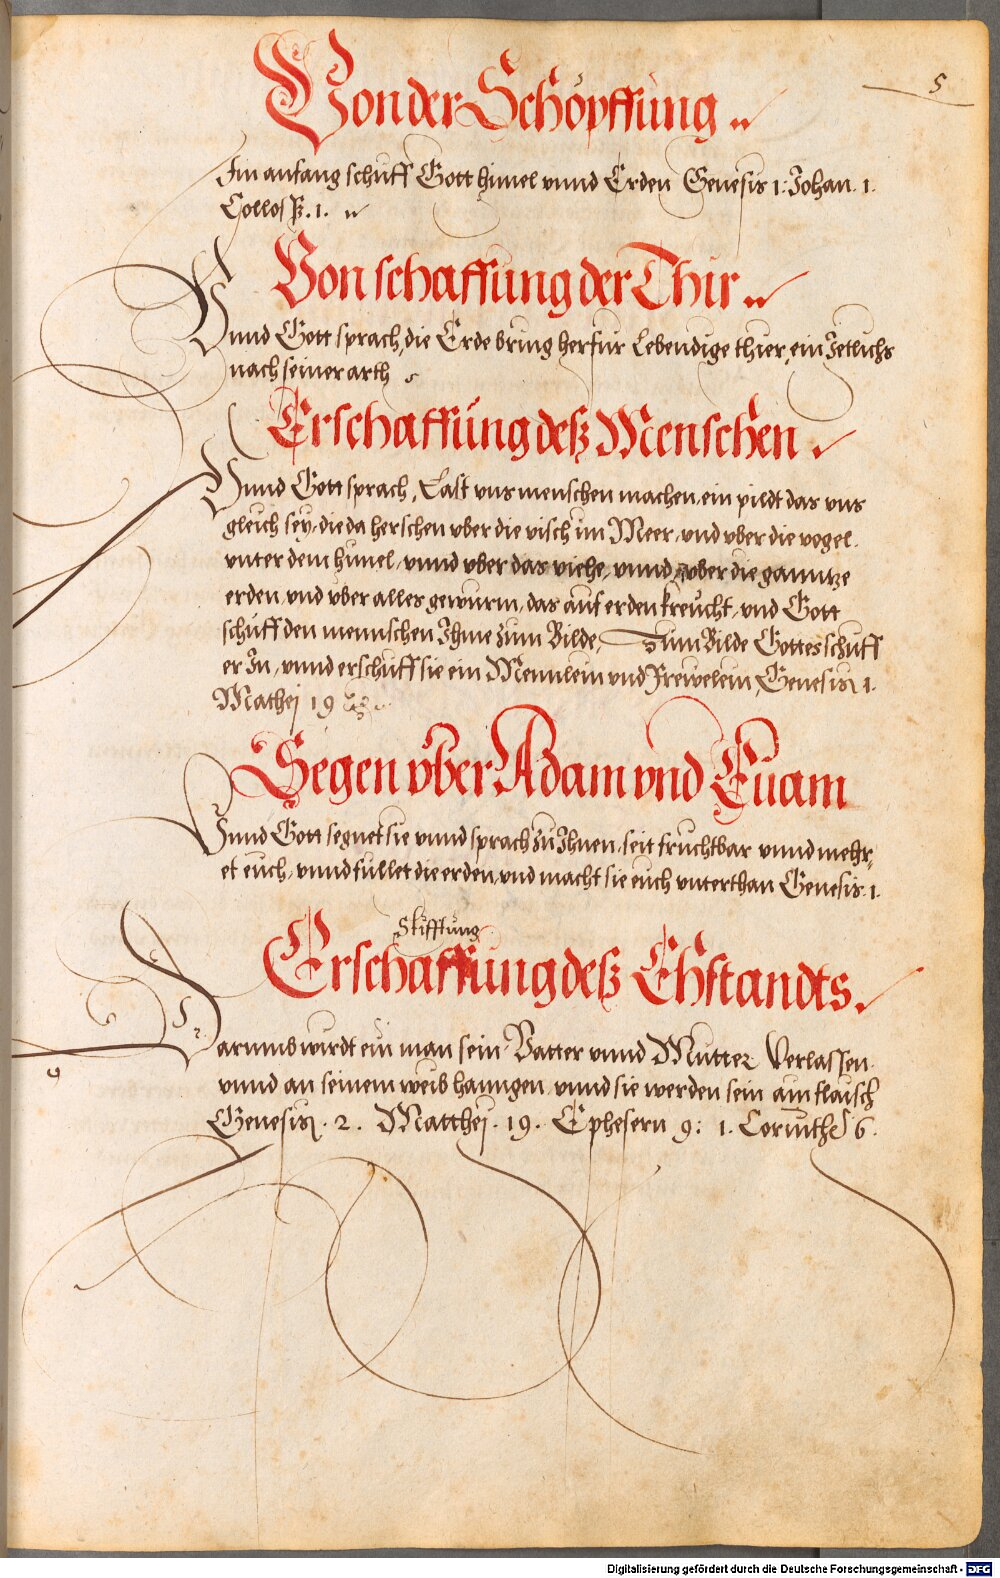 5
Von der Schöpffung
Im anfang schuff Gott himel vnnd Erden Genesis 1: Johan. 1.
Colloss. 1.
Von schaffung der Thir
Vnnd Gott sprach, die Erde bring herfür Lebendige thier, ein Jetlichs
nach seiner arth
Erschaffung deß Menschen.
Vnnd Gott sprach, Last vns menschen machen, ein pildt das vns
gleich sey, die da herschen vber die visch im Meer, vnd vber die vogel
vnter dem himel, vnnd vber das viehe, vnnd vber die ganntze
erden, vnd vber alles gewürm, das auf erden kreücht, vnd Gott
schuff den mennschen Ihme zum Bilde, Zum Bilde Gottes schuff
er In, vnnd erschuff sie ein Mennlein vnd Frewelein, Genesis 1.
Mathej 19
Segen vber Adam vnd Euam
Vnnd Gott segnet sie vnnd sprach zu Ihnen, seit fruchtbar vnnd mehr,
et euch, vnnd fullet die erden, vnd macht sie euch vnterthan Genesis. 1.
Stifftung
Erschaffung deß Ehstandts.
Darumb wirdt ein man sein Vatter vnnd Mutter Verlassen.
vnnd an seinem weib hanngen, vnnd sie werden sein ain flaisch
Genesis. 2. Matthej. 19. Ephesern 9: 1. Corinth 6.
Digitalisierung gefördert durch die Deutsche Forschungsgemeinschaft - DFG